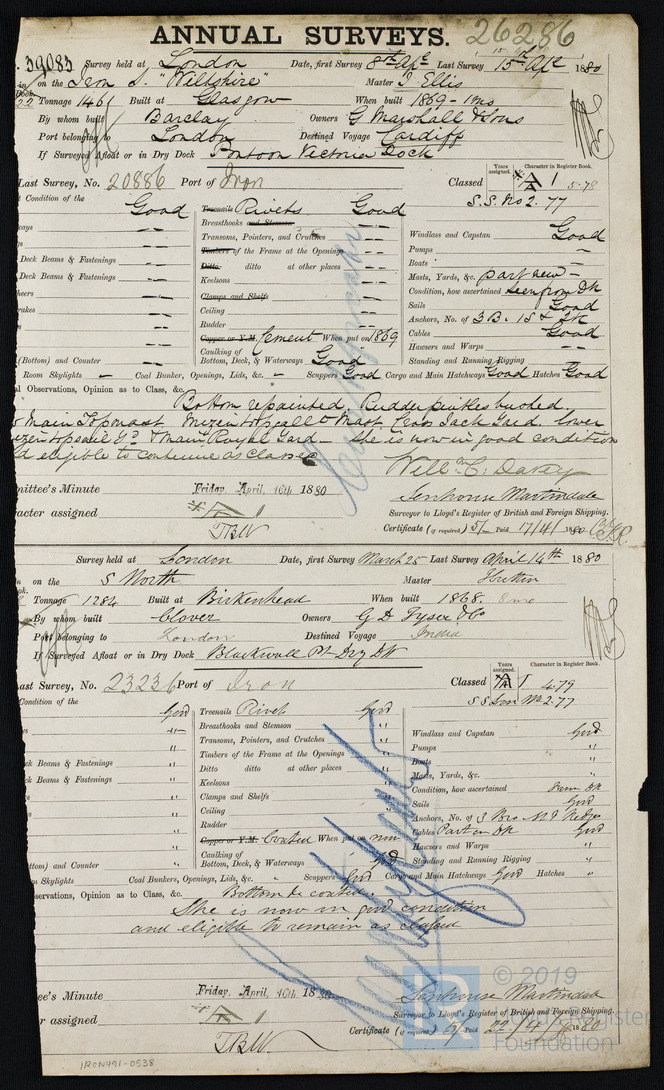 ANNUAL SURVEYS. 26286
39083 Survey held at London Date, first Survey 8th Apl Last Survey 15th Apl 1880
on the Iron S. "Wiltshire" Master J Ellis
Tonnage 1461 Built at Glasgow When built 1869 - 1mo
By whom built Barclay Owners G Marshall & Sons
Port belonging to London Destined Voyage Cardiff
If Surveyed Afloat or in Dry Dock Pontoon Victoria Dock
Last Survey, No. 20886 Port of Iron Classed Years assigned. Character in Register Book. A 1 5.78
S.S. No 2.77
Condition of the Good Treenails Rivets Good
Breasthooks and Stemson " Windlass and Capstan Good
Transoms, Pointers, and Crutches " Pumps "
Timbers of the Frame at the Openings " Boats "
Deck Beams & Fastenings " Ditto ditto at other places " Masts, Yards, &c. part new "
Deck Beams & Fastenings " Keelsons " Condition, how ascertained seen from Dk
Clamps and Shelfs " Sails Good
Ceiling " Anchors, No. of 3 B. 1 S & 2K
Rudder " Cables Good
Copper or Y.M. Cement When put on 1869 Hawsers and Warps "
(Bottom) and Counter " Caulking of Bottom, Deck, & Waterways Good Standing and Running Rigging "
Room Skylights " Coal Bunker, Openings, Lids, &c. " Scuppers Good Cargo and Main Hatchways Good Hatches Good
Observations, Opinion as to Class, &c.
Bottom repainted Rudder pintles bushed
Main Topmast Mizen topgallt Mast Cross Jack Yard lower
mizen topsail Yd & Main Royal Yard - She is now in good condition
eligible to continue as classed
Willm C. Davey
mittee's Minute Friday April 16th 1880 Senhouse Martindale
acter assigned A 1 Surveyor to Lloyd's Register of British and Foreign Shipping.
TBW Certificate (if required) 5/- Paid 17/4/1880
Survey held at London Date, first Survey March 25 Last Survey April 14th 1880
on the S North Master
Tonnage 1284 Built at Birkenhead When built 1868. 8mo
By whom built Clover Owners G D Tyser & Co
Port belonging to London Destined Voyage India
If Surveyed Afloat or in Dry Dock Blackwall Pt Dry Dk
ast Survey, No. 23236 Port of Iron Classed Years assigned. Character in Register Book. A 1 4.79
SS Lon No 2.77
Condition of the Good Treenails Rivets Good
Breasthooks and Stemson " Windlass and Capstan Good
Transoms, Pointers, and Crutches " Pumps "
Timbers of the Frame at the Openings " Boats "
ck Beams & Fastenings " Ditto ditto at other places " Masts, Yards, &c. "
ck Beams & Fastenings " Keelsons " Condition, how ascertained From Dk
Clamps and Shelfs " Sails Good
Ceiling " Anchors, No. of 3 Brs
Rudder " Cables Part on Dk Good
Copper or Y.M. Coated When put on now Hawsers and Warps "
ttom) and Counter " Caulking of Bottom, Deck, & Waterways Good Standing and Running Rigging "
m Skylights " Coal Bunkers, Openings, Lids, &c. " Scuppers Good Cargo and Main Hatchways Good Hatches "
servations, Opinion as to Class, &c. Bottom re coated.
She is now in good condition
and eligible to remain as classed
tee's Minute Friday, April, 16th 1880 Senhouse Martindale
r assigned A 1 Surveyor to Lloyd's Register of British and Foreign Shipping.
TBW Certificate (if required) 5/ Paid 22/4/1880
IRON491-0538
© 2019
Lloyd's Register
Foundation